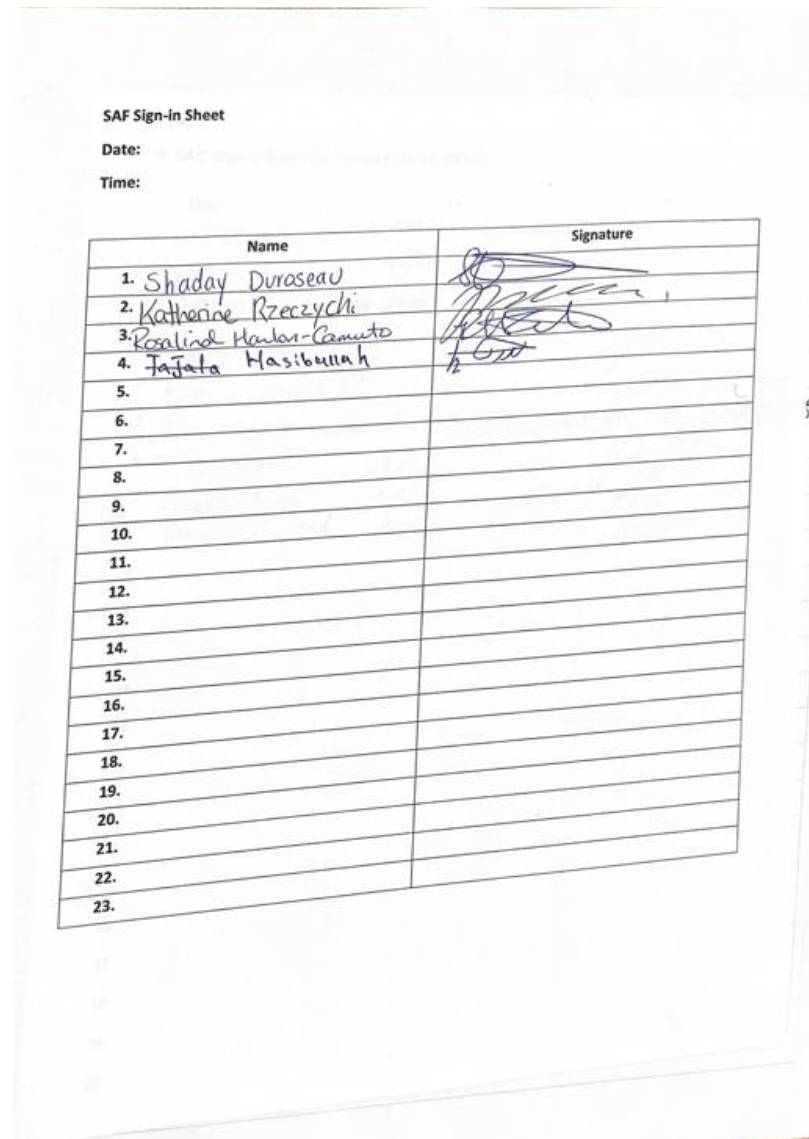 SAF Sign-in Sheet
Date:
Time:
Name Signature
1. Shaday Duroseau
2. Katherine Rzeczychi
3. Rosalind Hanlon-Camuto
4. Jajata Hasibullah
5.
6.
7.
8.
9.
10.
11.
12.
13.
14.
15.
16.
17.
18.
19.
20.
21.
22.
23.